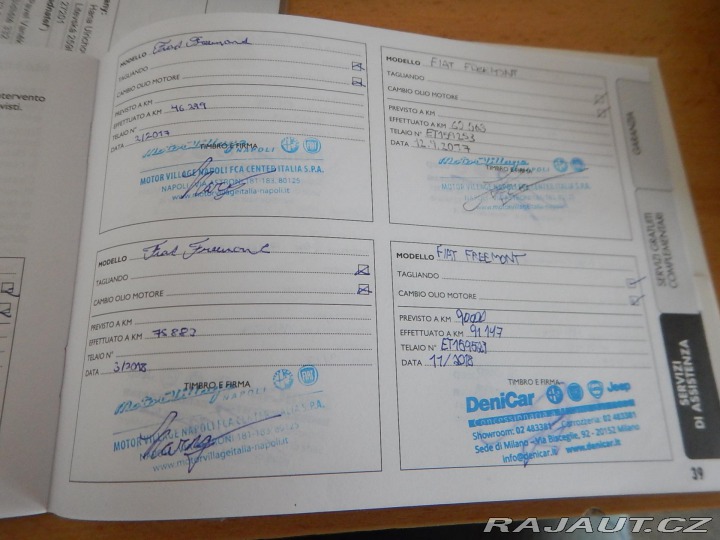 Hana
Litevská
27201
Pavel
ntervento
visti.
MODELLO Fiat Freemont
TAGLIANDO
CAMBIO OLIO MOTORE
PREVISTO A KM
EFFETTUATO A KM 46289
TELAIO N°
DATA 2/2017
TIMBRO E FIRMA
Motor Village NAPOLI
MOTOR VILLAGE NAPOLI FCA CENTER ITALIA S.P.A.
NAPOLI 181-183, 80125
www.motorvillageitalia-napoli.it
MODELLO FIAT FREEMONT
TAGLIANDO
CAMBIO OLIO MOTORE
PREVISTO A KM
EFFETTUATO A KM
TELAIO N°
DATA 12.7.2017
TIMBRO E FIRMA
Motor Village NAPOLI
MOTOR VILLAGE NAPOLI FCA CENTER ITALIA S.P.A.
MODELLO Fiat Freemont
TAGLIANDO
CAMBIO OLIO MOTORE
PREVISTO A KM
EFFETTUATO A KM 75882
TELAIO N°
DATA 3/2018
TIMBRO E FIRMA
Motor Village NAPOLI
FIAT
MOTOR VILLAGE NAPOLI ITALIA S.P.A.
181-183, 80125
www.motorvillageitalia-napoli.it
MODELLO FIAT FREEMONT
TAGLIANDO
CAMBIO OLIO MOTORE
PREVISTO A KM 90000
EFFETTUATO A KM 91147
TELAIO N° ET159521
DATA 11/2018
TIMBRO E FIRMA
DeniCar Jeep
Concessionaria
Showroom: 02 483381 Carrozzeria: 02 483381
Sede di Milano - Via Bisceglie, 92 - 20152 Milano
info@denicar.it www.denicar.it
GARANZIA
SERVIZI GRATUITI
COMPLEMENTARI
SERVIZI
DI ASSISTENZA
39
RAJAUT.CZ